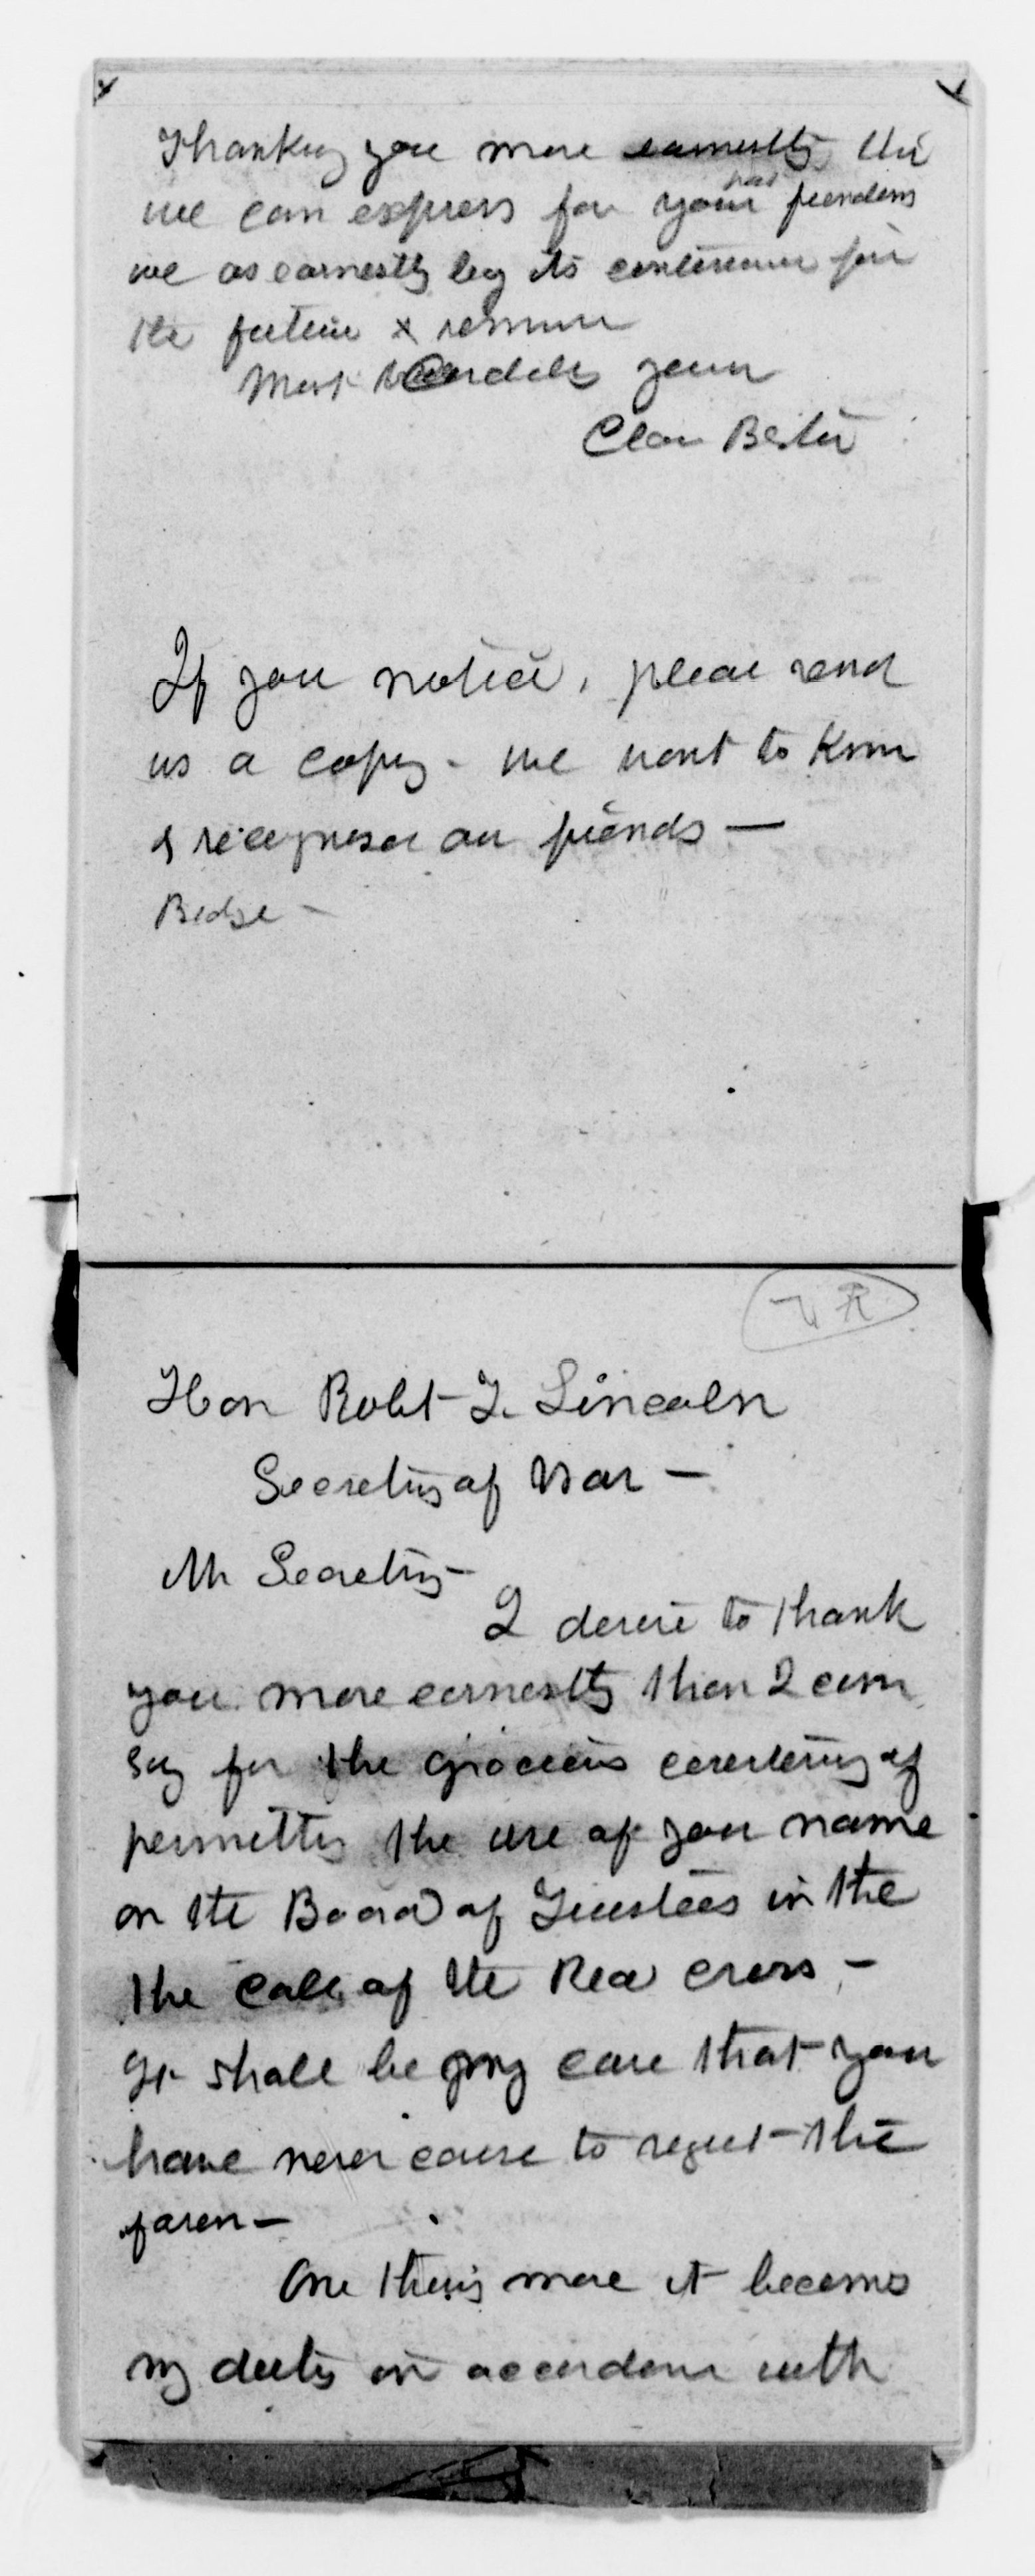 Thanking you more earnestly than
we can express for your past friendliness
we as earnestly beg its continuance for
the future & remain
Most cordially yours
Clara Barton
If you notice, please send
us a copy - we want to know
& recognise our friends —
Badge -
Hon Robt T. Lincoln
Secretary of War —
Mr Secretary -
I desire to thank
you more earnestly than I can
say for the gracious courtesy of
permitting the use of your name
on the Board of Trustees in the
the call of the Red Cross -
It shall be my care that you
have never cause to regret the
favor -
One thing more it becomes
my duty in accordance with